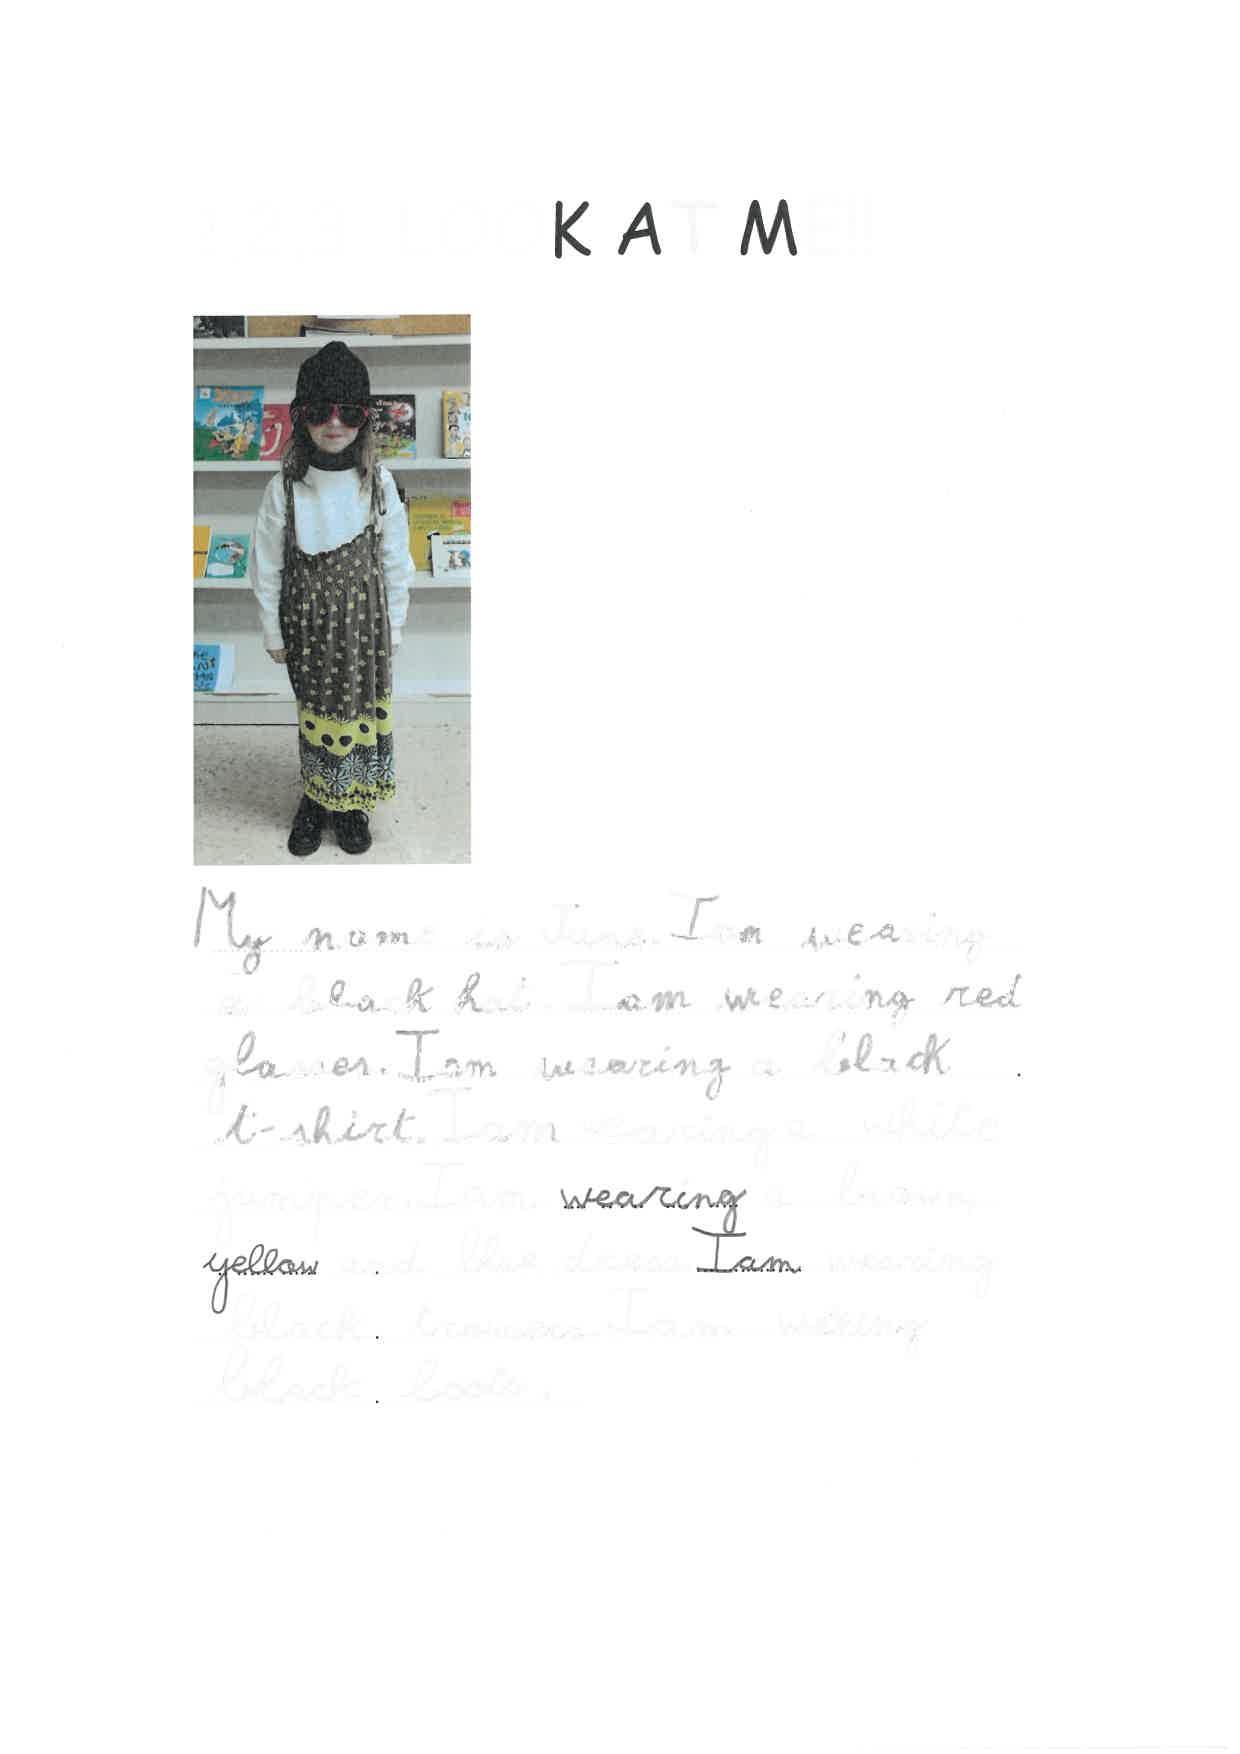 1,2,3 LOOK AT ME!!
My name is June. I am wearing
a black hat. I am wearing red
glasses. I am wearing a black
t-shirt. I am earing a white
jumper. I am wearing a brown,
yellow and blue dress. I am wearing
black trousers. I am wearing
black boots.